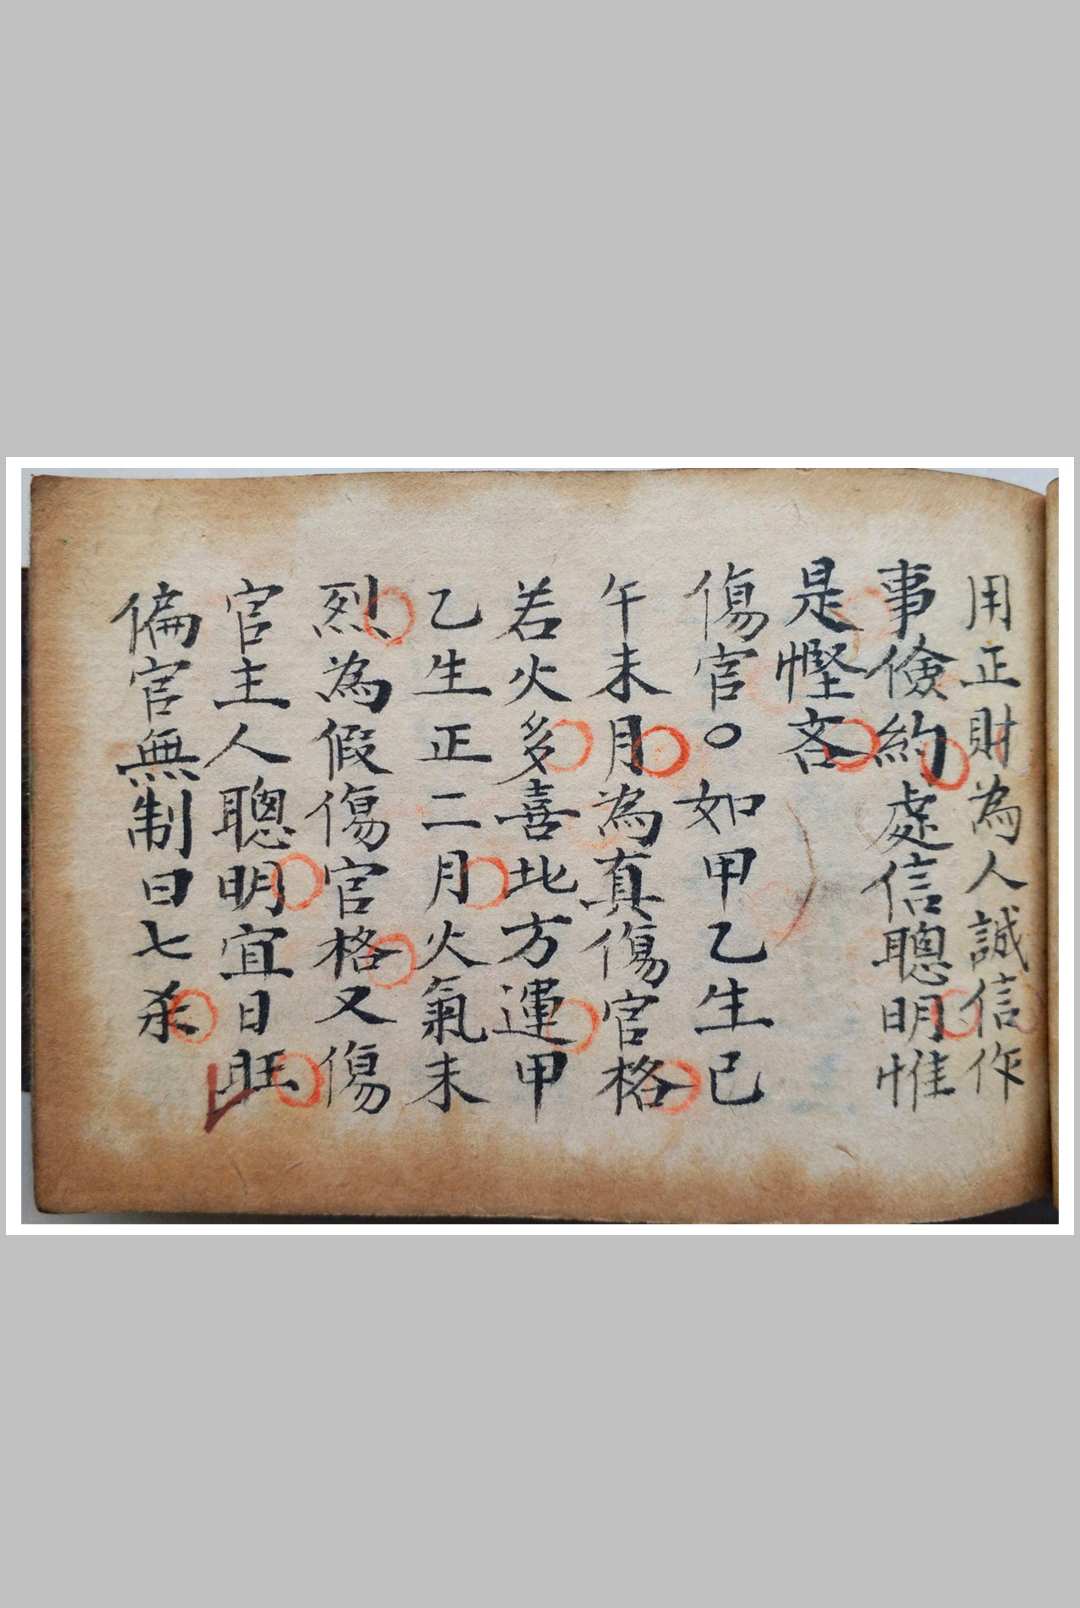 用正財為人誠信作
事儉約處信聰明惟
是慳吝
傷官〇如甲乙生巳
午未月為真傷官格
若火多喜北方運甲
乙生正二月火氣未
烈為假傷官格又傷
官主人聰明宜日旺
偏官無制曰七杀